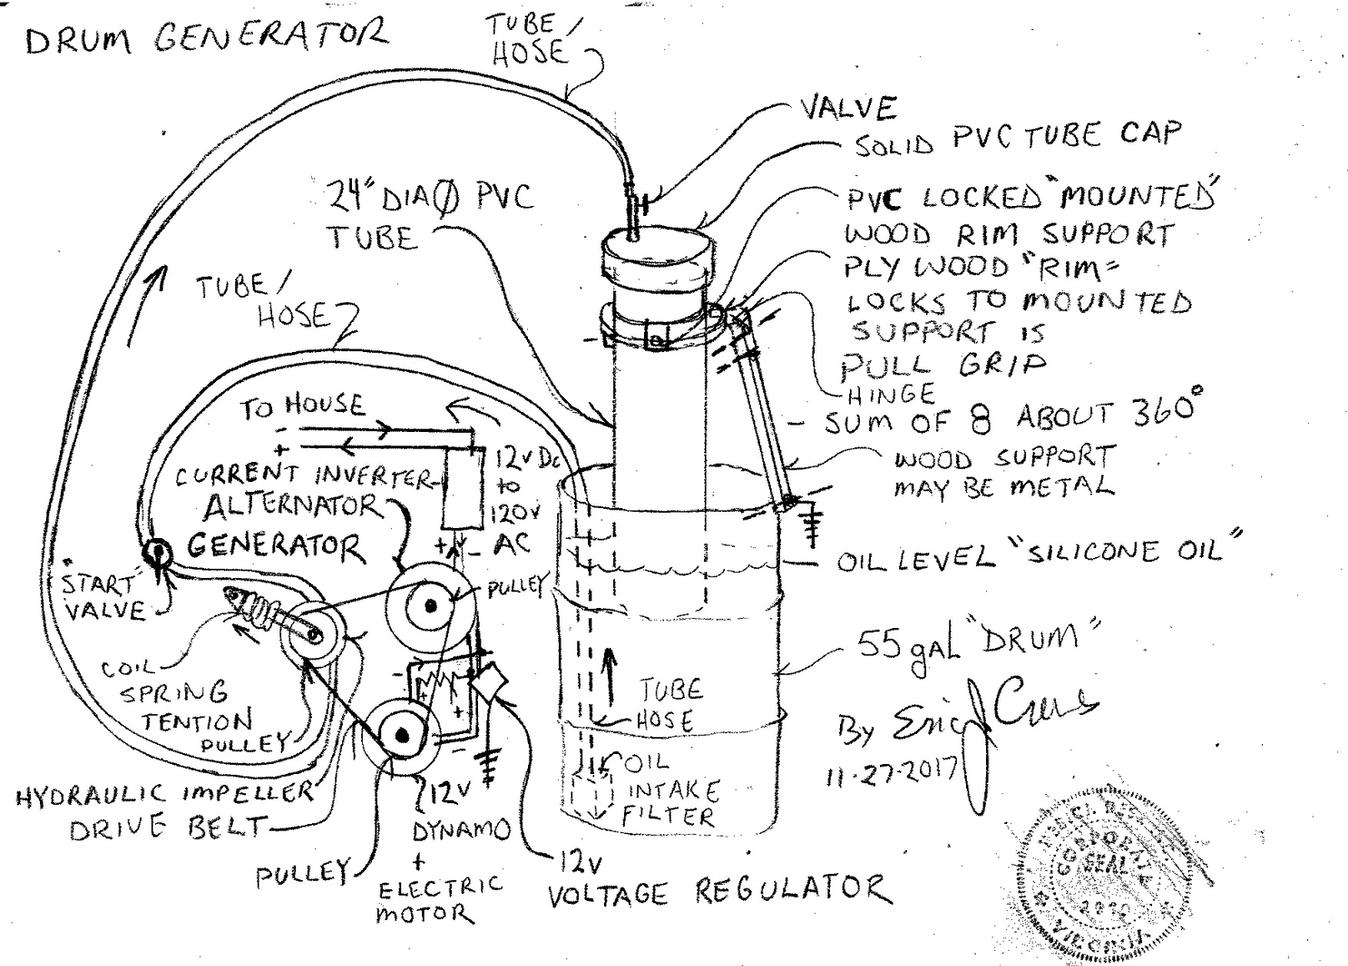 DRUM GENERATOR
TUBE/
HOSE
VALVE
SOLID PVC TUBE CAP
24" DIA Ø PVC
TUBE
PVC LOCKED "MOUNTED"
WOOD RIM SUPPORT
PLY WOOD "RIM"
LOCKS TO MOUNTED
SUPPORT IS
PULL GRIP
HINGE
- SUM OF 8 ABOUT 360°
WOOD SUPPORT
MAY BE METAL
TUBE/
HOSE
TO HOUSE
-
+
CURRENT INVERTER
12v Dc
to
120v
AC
ALTERNATOR
GENERATOR
+ -
PULLEY
"START"
VALVE
COIL
SPRING
TENTION
PULLEY
HYDRAULIC IMPELLER
DRIVE BELT
PULLEY
12V
DYNAMO
+
ELECTRIC
MOTOR
-
+
+
-
12v
VOLTAGE REGULATOR
OIL LEVEL "SILICONE OIL"
55 gAL "DRUM"
TUBE
HOSE
OIL
INTAKE
FILTER
By Eric
11-27-2017
CORPORATE
SEAL
VIRGINIA